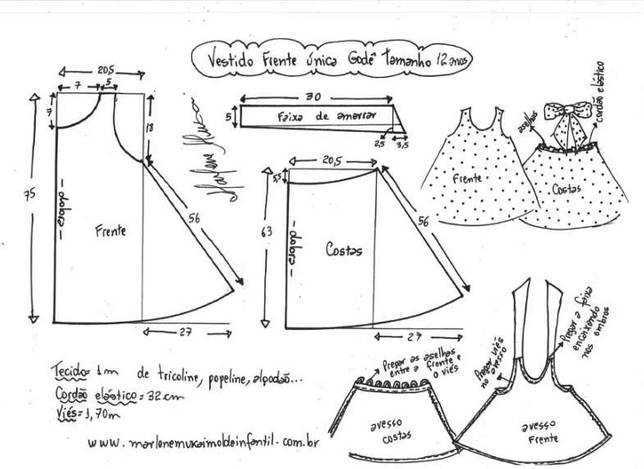 Vestido Frente única Godê Tamanho 12 anos
20,5
7
5
7
18
75
dobra
Frente
56
27
30
5
Faixa de amarrar
2,5
3,5
20,5
5,5
63
dobra
Costas
56
27
Frente
aselhas
cordão elástico
Costas
Tecido= 1m de tricoline, popeline, algodão...
Cordão elástico= 32 cm
Viés= 1,70m
www.marlenemukaimoldeinfantil.com.br
Pregar as aselhas
entre a frente e
o viés
avesso
costas
Pregar viés
no avesso
Pregar a faixa
encaixando
nos ombros
avesso
Frente